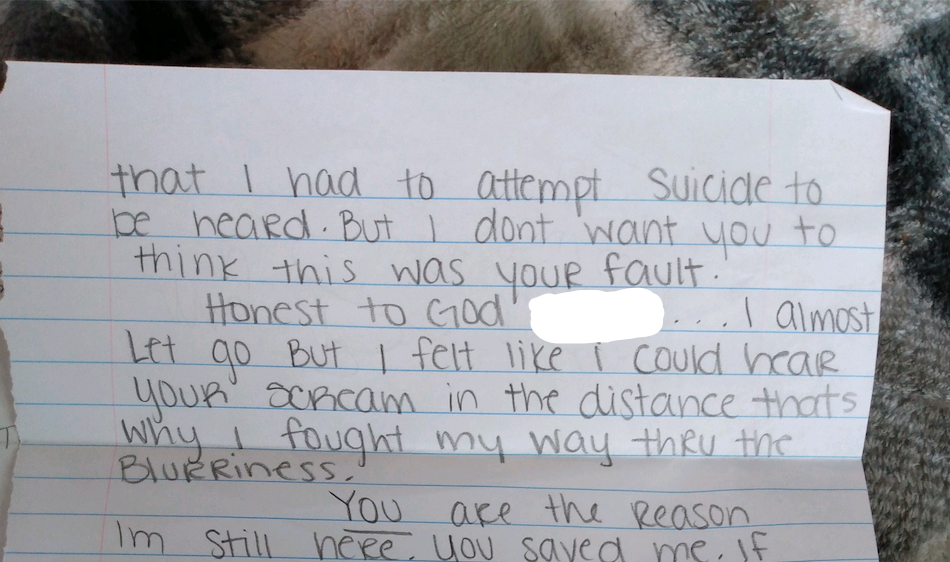 that I had to attempt Suicide to
be heard. But I dont want you to
think this was your fault.
Honest to God ... I almost
Let go But I felt like i could hear
your scream in the distance thats
why I fought my way thru the
Blurriness.
You are the Reason
Im still here. you saved me. If